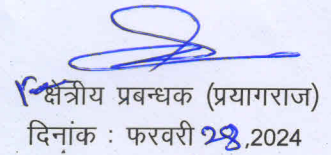 क्षेत्रीय प्रबन्धक (प्रयागराज)
दिनांक : फरवरी 28,2024